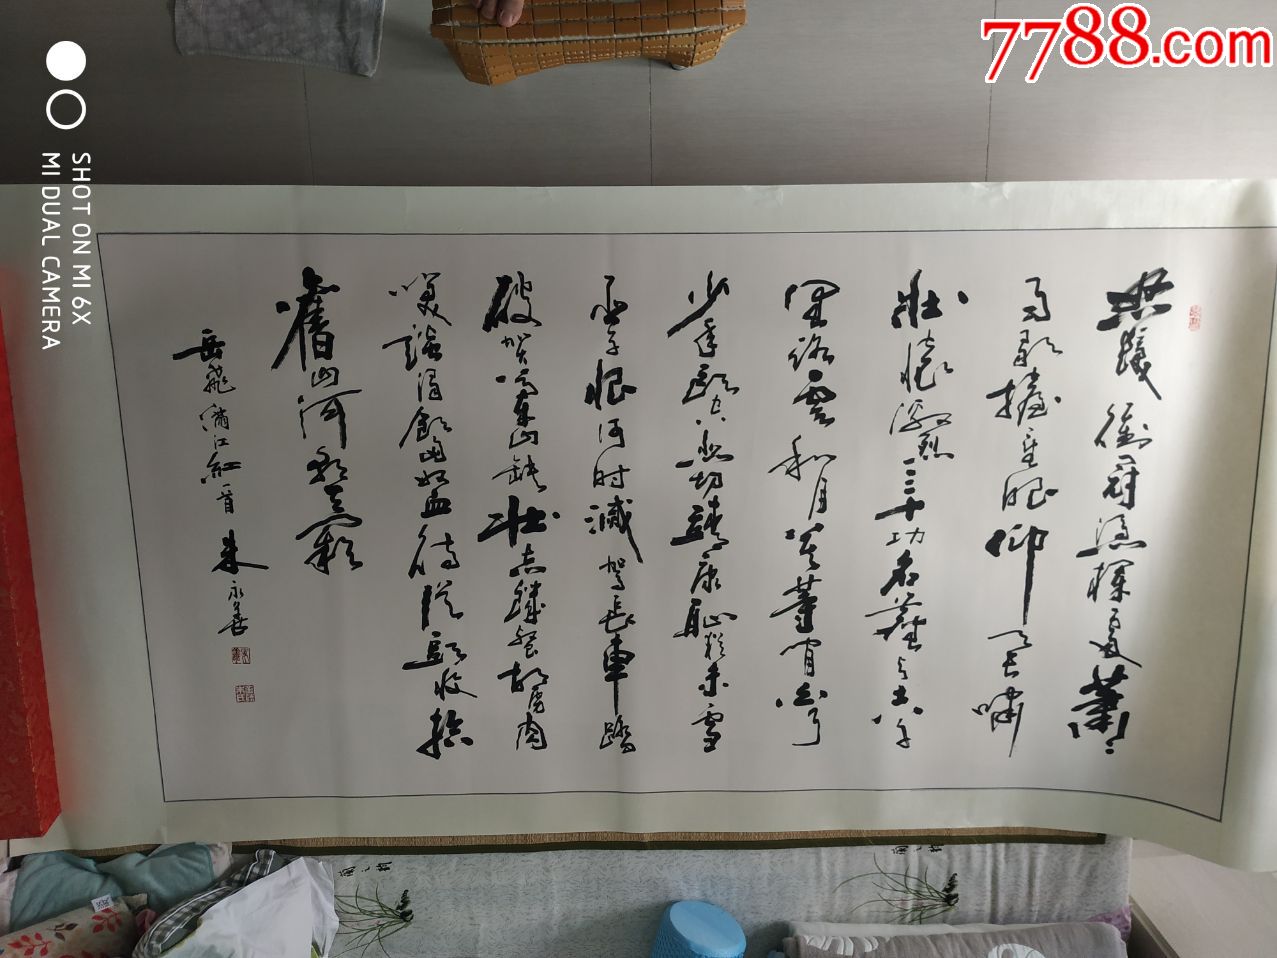 怒髮衝冠憑欄處蕭〻
雨歇擡望眼仰天長嘯
壯懷激烈三十功名塵與土八千
里路雲和月莫等閒白了
少年頭空悲切靖康恥猶未雪
臣子恨何时滅駕長車踏
破賀蘭山缺壯志饑餐胡虜肉
笑談渴飲匈奴血待從頭收拾
舊山河朝天闕
岳飛滿江紅一首 朱永善
7788.com
SHOT ON MI 6X
MI DUAL CAMERA